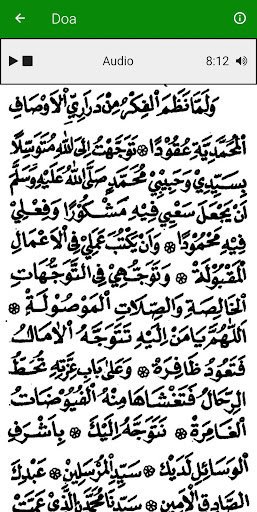 Doa
Audio 8:12
وَلَمَّا نَظَمَ الْفِكْرُ مِنْ دَرَارِيِّ الْاَوْصَافِ
الْمُحَمَّدِيَّةِ عُقُوْدًا ۞ تَوَجَّهْتُ اِلَى اللّٰهِ مُتَوَسِّلًا
بِسَيِّدِيْ وَحَبِيْبِيْ مُحَمَّدٍ صَلَّى اللّٰهُ عَلَيْهِ وَسَلَّمَ
اَنْ يَجْعَلَ سَعْيِيْ فِيْهِ مَشْكُوْرًا وَفِعْلِيْ
فِيْهِ مَحْمُوْدًا ۞ وَاَنْ يَكْتُبَ عَمَلِيْ فِي الْاَعْمَالِ
الْمَقْبُوْلَةِ ۞ وَتَوَجُّهِيْ فِي التَّوَجُّهَاتِ
الْخَالِصَةِ وَالصِّلَاتِ الْمَوْصُوْلَةِ ۞
اَللّٰهُمَّ يَا مَنْ اِلَيْهِ تَتَوَجَّهُ الْاٰمَالُ
فَتَعُوْدُ ظَافِرَةً ۞ وَعَلَى بَابِ عِزَّتِهِ تُحَطُّ
الرِّحَالُ فَتَغْشَاهَا مِنْهُ الْفُيُوْضَاتُ
الْغَامِرَةُ ۞ نَتَوَجَّهُ اِلَيْكَ ۞ بِاَشْرَفِ
الْوَسَائِلِ لَدَيْكَ ۞ سَيِّدِ الْمُرْسَلِيْنَ ۞ عَبْدِكَ
الصَّادِقِ الْاَمِيْنِ ۞ سَيِّدِنَا مُحَمَّدٍ الَّذِيْ عَمَّتْ